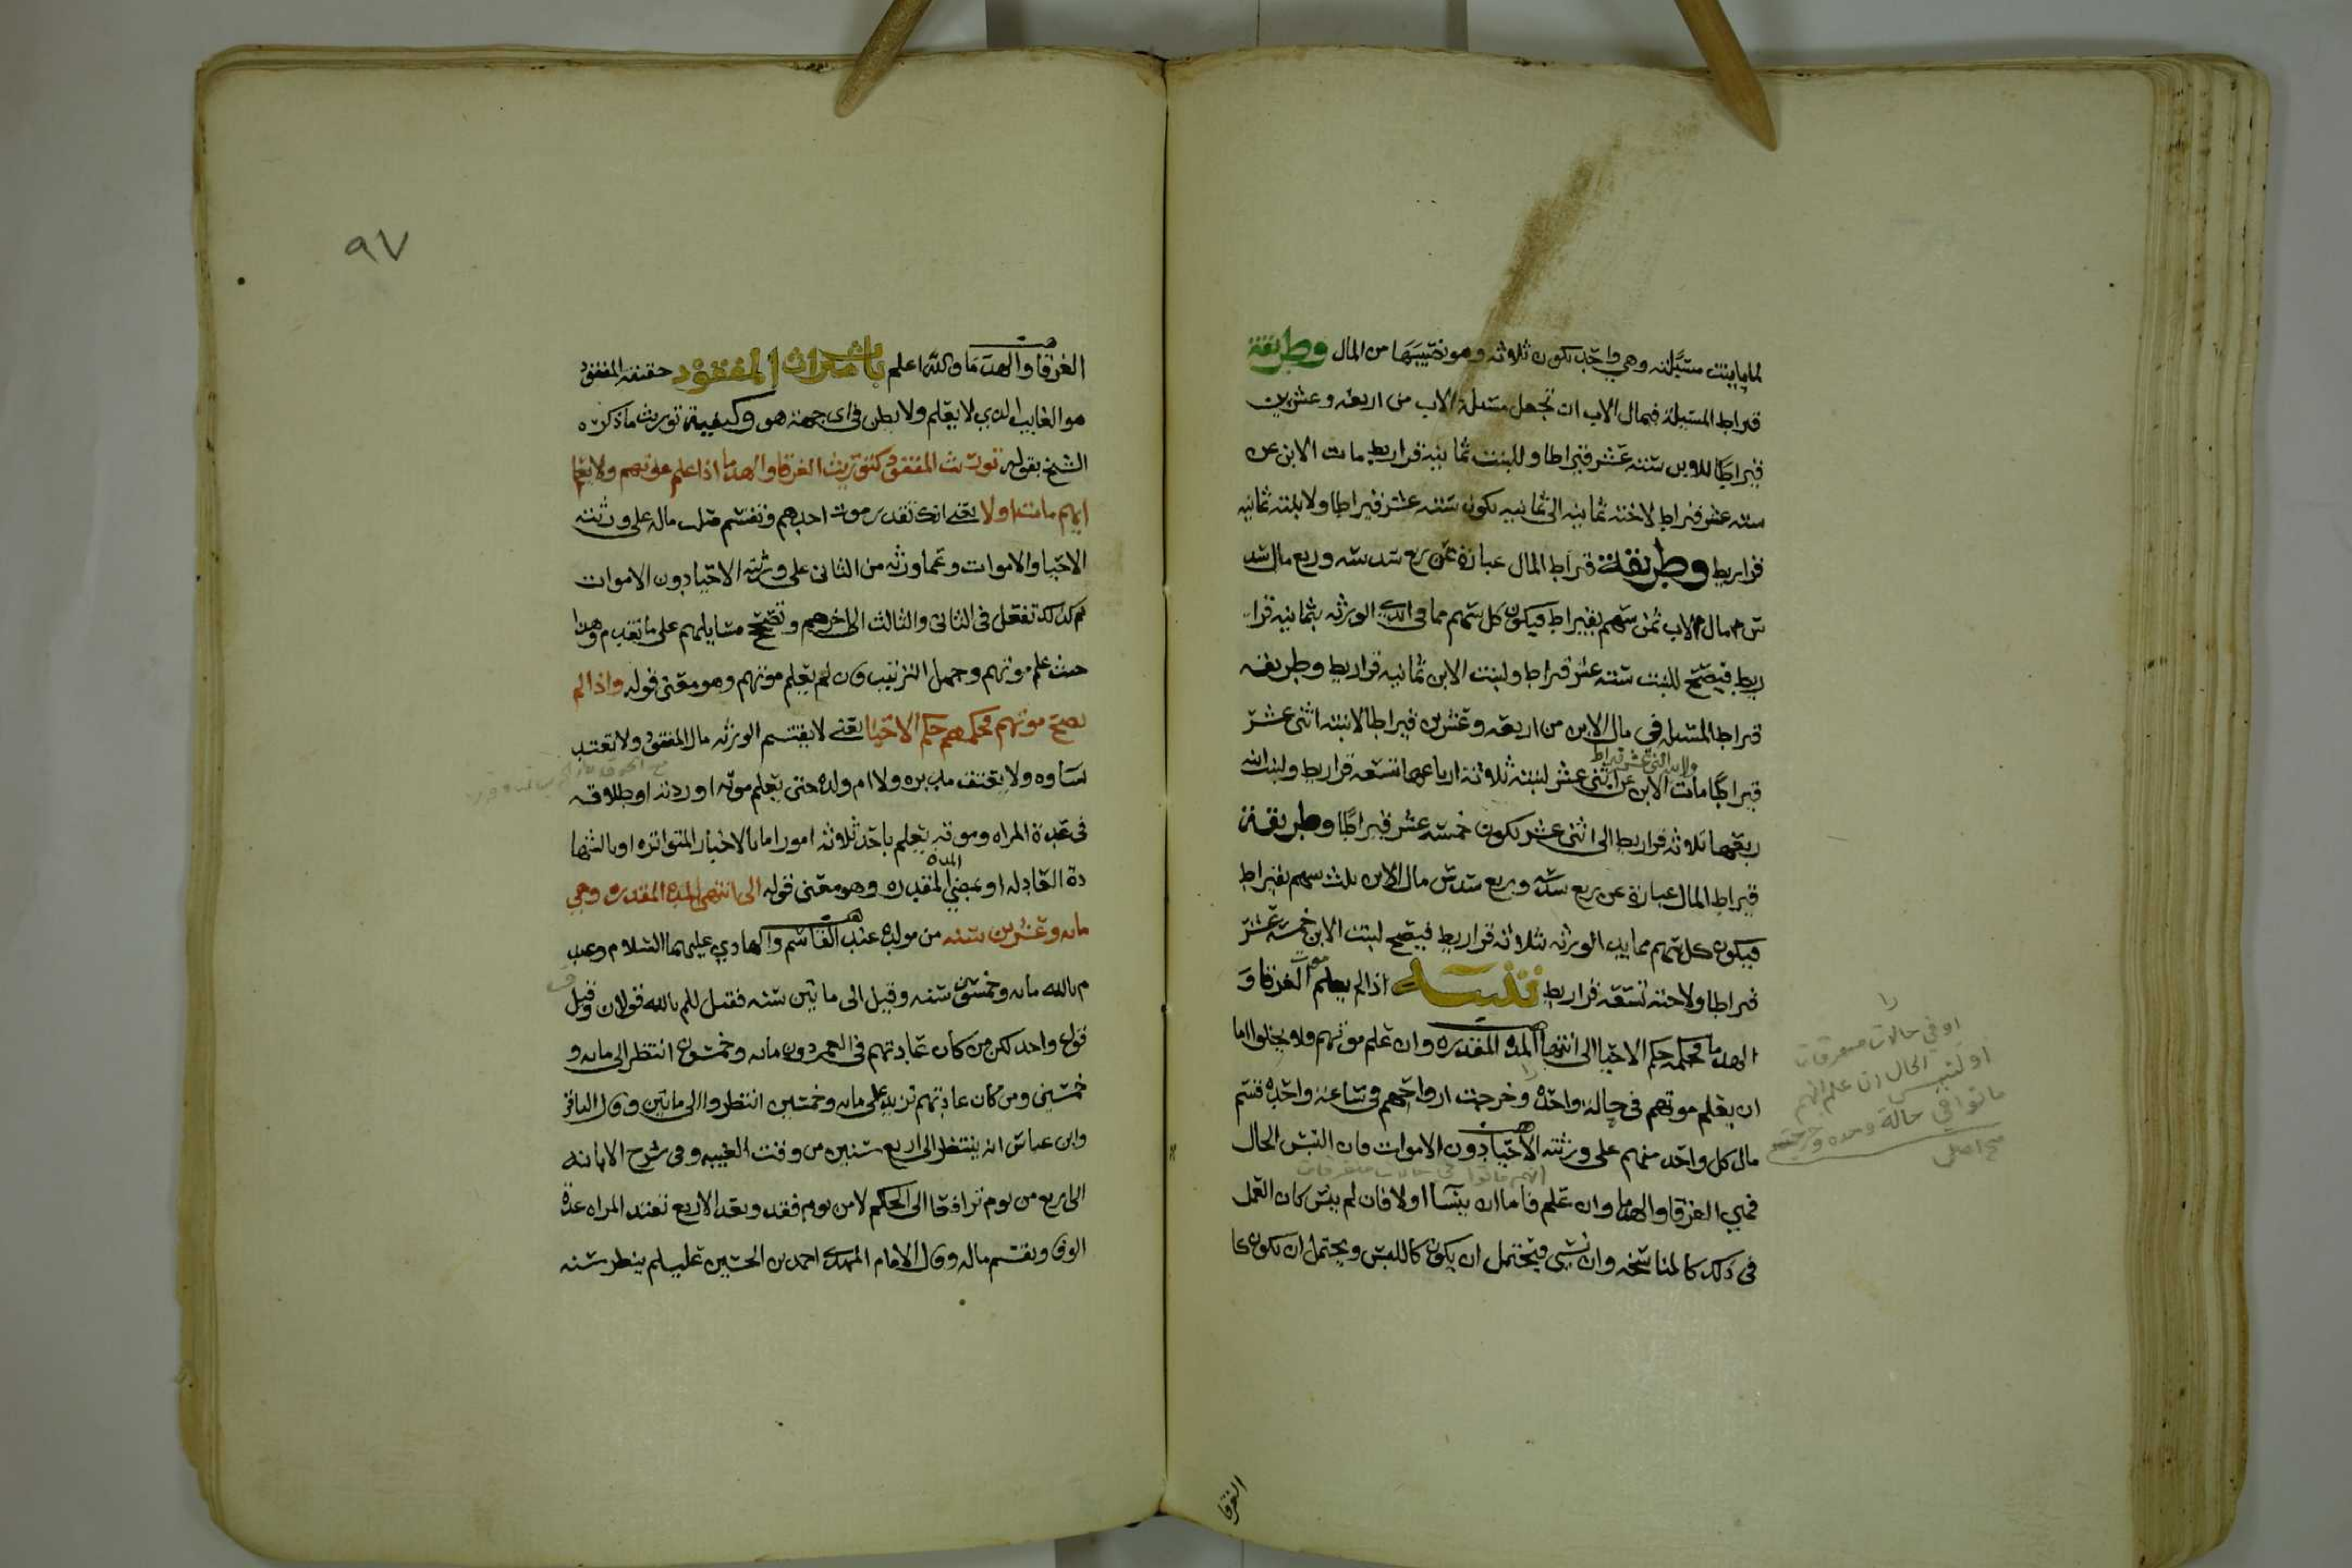 لما بابنت مسئلته وهي واحد يكون ثلاثه وهو نصيبها من المال وطريقة
قيراط المسئلة في مال الاب ان تجعل مسئلة الاب من اربعه وعشرين
قيراطا للابن ستة عشر قيراطا وللبنت ثمانية قراريط مات الابن عن
سته عشر قيراط لاخته ثمانيه الى ثمانيه يكون سته عشر قيراطا ولابنته ثمانيه
قراريط وطريقة قيراط المال عبارة عن ربع سدسه وربع مال سد
س مال الاب ثمن سهم بقيراط فيكون كل سهم مما في ايدي الورثه بثمانيه قرا
ريط فيصح للبنت سته عشر قيراط ولبنت الابن ثمانيه قراريط وطريقه
قيراط المسئله في مال الابن من اربعه وعشرين قيراطا لابنته اثنى عشر
ولابـ اثنى عشر قيراط
قيراطا مات الابن عن اثنى عشر لبنته ثلاثة ارباعها تسعه قراريط ولبنت
ربعها ثلاثه قراريط الى اثنى عشر يكون خمسه عشر قيراطا وطريقة
قيراط المال عبارة عن ربع سدسه وربع سدس مال الابن ثلث سهم بقيراط
فيكون كل سهم مما بيد الورثه بثلاثه قراريط فيصح لبنت الابن خمسة عشر
قيراطا ولاخته تسعه قراريط تنبيه اذا لم يعلم موت الغرقا و
الهدما فحكمه حكم الاحيا الى انتها المده المقدره وان علم موتهم ولا يخلوا اما
ان يعلم موتهم في حالة واحدة وخرجت ارواحهم في ساعة واحده قسم
مال كل واحد منهم على ورثته الاحيا دون الاموات فان التبس الحال
انهم ماتوا في حالات متفرقات
فهي الغرقا والهدما وان علم فاما ان ينسا اولا فان لم ينس كان العمل
في ذلك كالمناسخه وان نسي فيحتمل ان يكون كاللبس ويحتمل ان يكون كا
او في حالات متفرقات
او لتبس الحال ان علم انهم
ماتوا في حالة وحده وخرجت
صح اصل
الغرقا
٩٧
الغرقا والهدما والله اعلم باب ميراث المفقود حقيقة المفقود
هو الغايب الذي لا يعلم ولا يظن في اى جهة هو وكيفية توريث ما ذكره
الشيخ بقوله توريث المفقود كتوريث الغرقا والهدما اذا علم موتهم ولا يعلم
ايهم مات اولا يعني انك تقدر موت احدهم وتقسم صلب ماله على ورثته
الاحيا والاموات وتما ورثه من الثاني على ورثته الاحيا دون الاموات
ثم كذلك تفعل في الثاني والثالث الى اخرهم وتصح مسايلهم على ما تقدم وهذا
حيث علم موتهم وجهل الترتيب فان لم يعلم موتهم وهو معنى قوله واذا لم
يصح موتهم فحكمهم حكم الاحيا يعني لا يقتسم الورثه مال المفقود ولا تعتد
نساوه ولا يعتق مدبره ولا ام ولده حتى يعلم موته او ردته او طلاقه
في عدة المراه وموته يعلم باحد ثلاثه امور اما بالاخبار المتواتره او بالشها
دة العادله او بمضي المدة المقدره وهو معنى قوله الى انتهى المده المقدره وهي
مائه وعشرين سنه من مولده عند القاسم والهادي عليهما السلام وعن
م بالله مائه وخمسين سنه وقيل الى مائتين سنه فقيل للم بالله قولان وقيل
قول واحد لكن من كان عادتهم في العمر دون مائه وخمسون انتظر الى مائه و
خمسين ومن كان عادتهم تزيد على مائه وخمسين انتظروا الى مائتين وقال الباقر
وابن عباس انه ينتظر الى اربع سنين من وقت الغيبه وفي شرح الابانه
الى اربع من يوم ترافعا الى الحاكم لا من يوم فقد وبعد الاربع تعتد المراه عدة
الوفا ويقسم ماله وقال الامام المهدي احمد بن الحسين عليلم ينظر سنه